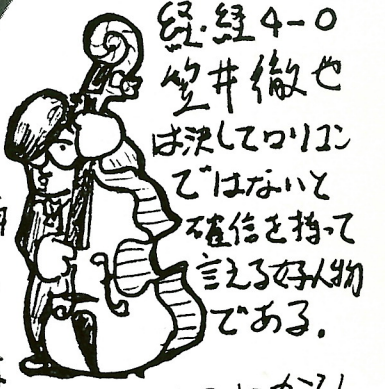 経・経4-0
笠井徹也
は決してロリコン
ではないと
確信を持って
言える好人物
である.